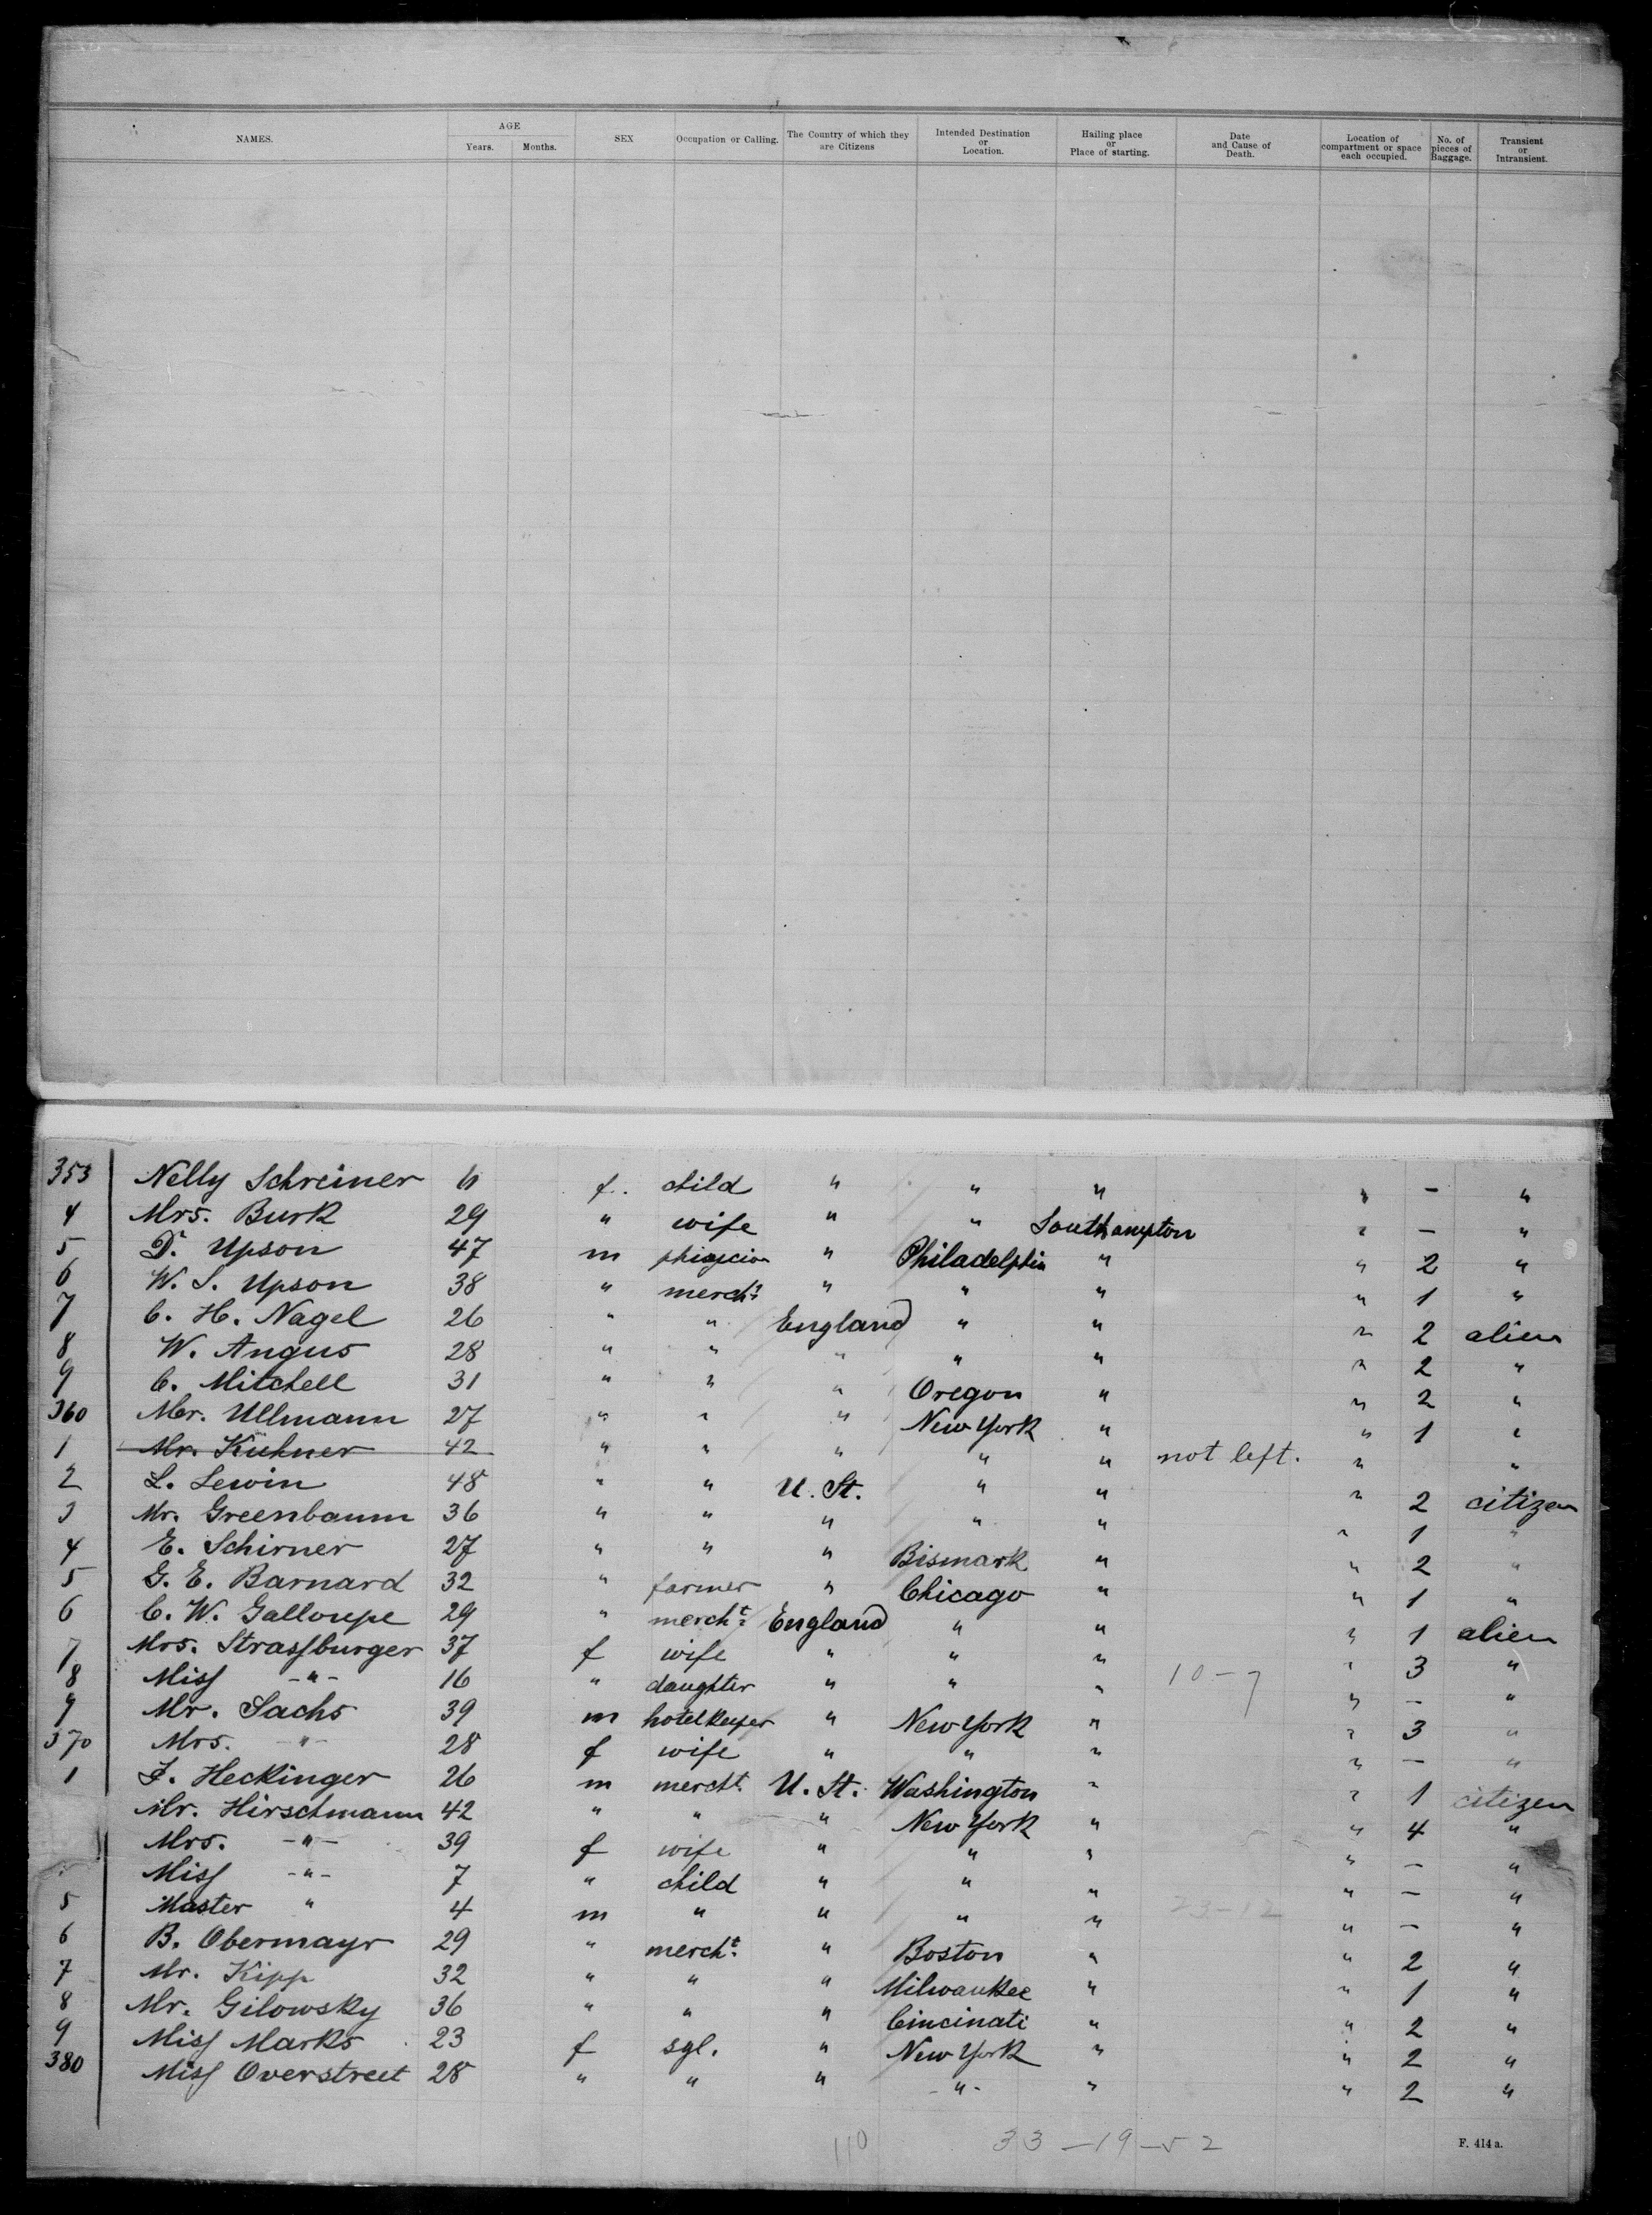 NAMES. AGE SEX Occupation or Calling. The Country of which they are Citizens Intended Destination or Location. Hailing place or Place of starting. Date and Cause of Death. Location of compartment or space each occupied. No. of pieces of Baggage. Transient or Intransient.
Years. Months.
353 Nelly Schreiner f. child " " " " – "
4 Mrs. Burk 29 " wife " " Southampton " – "
5 Dr. Upson 47 m " Philadelphia " " 2 "
6 W. S. Upson 38 " mercht. " " " " 1 "
7 C. H. Nagel 26 " " England " " " 2 alien
8 W. Angus 28 " " " " " " 2 "
9 C. Mitchell 31 " " " Oregon " " 2 "
360 Mr. Ullmann 27 " " " New York " " 1 "
1 Mr. Kühner 42 " " " " " not left. " "
2 L. Lewin 48 " " U. St. " " " 2 citizen
3 Mr. Greenbaum 36 " " " " " " 1 "
4 E. Schirner 27 " " " Bismark " " 2 "
5 G. E. Barnard 32 " farmer " Chicago " " 1 "
6 C. W. Galloupe 29 " mercht. England " " " 1 alien
7 Mrs. Strassburger 37 f wife " " " " 3 "
8 Miss -"- 16 " daughter " " " 10-7 " – "
9 Mr. Sachs 39 m hotelkeeper " New York " " 3 "
370 Mrs. -"- 28 f wife " " " " – "
1 F. Heckinger 26 m mercht. U. St. Washington " " 1 citizen
Mr. Hirschmann 42 " " " New York " " 4 "
Mrs. -"- 39 f wife " " " " – "
Miss -"- 7 " child " " " " – "
5 Master " 4 m " " " " 23-12 " – "
6 B. Obermayr 29 " mercht. " Boston " " 2 "
7 Mr. Kipp 32 " " " Milwaukee " " 1 "
8 Mr. Gilowsky 36 " " " Cincinati " " 2 "
9 Miss Marks 23 f sgl. " New York " " 2 "
380 Miss Overstreet 28 " " " -"- " " 2 "
110 33-19-52
F. 414 a.